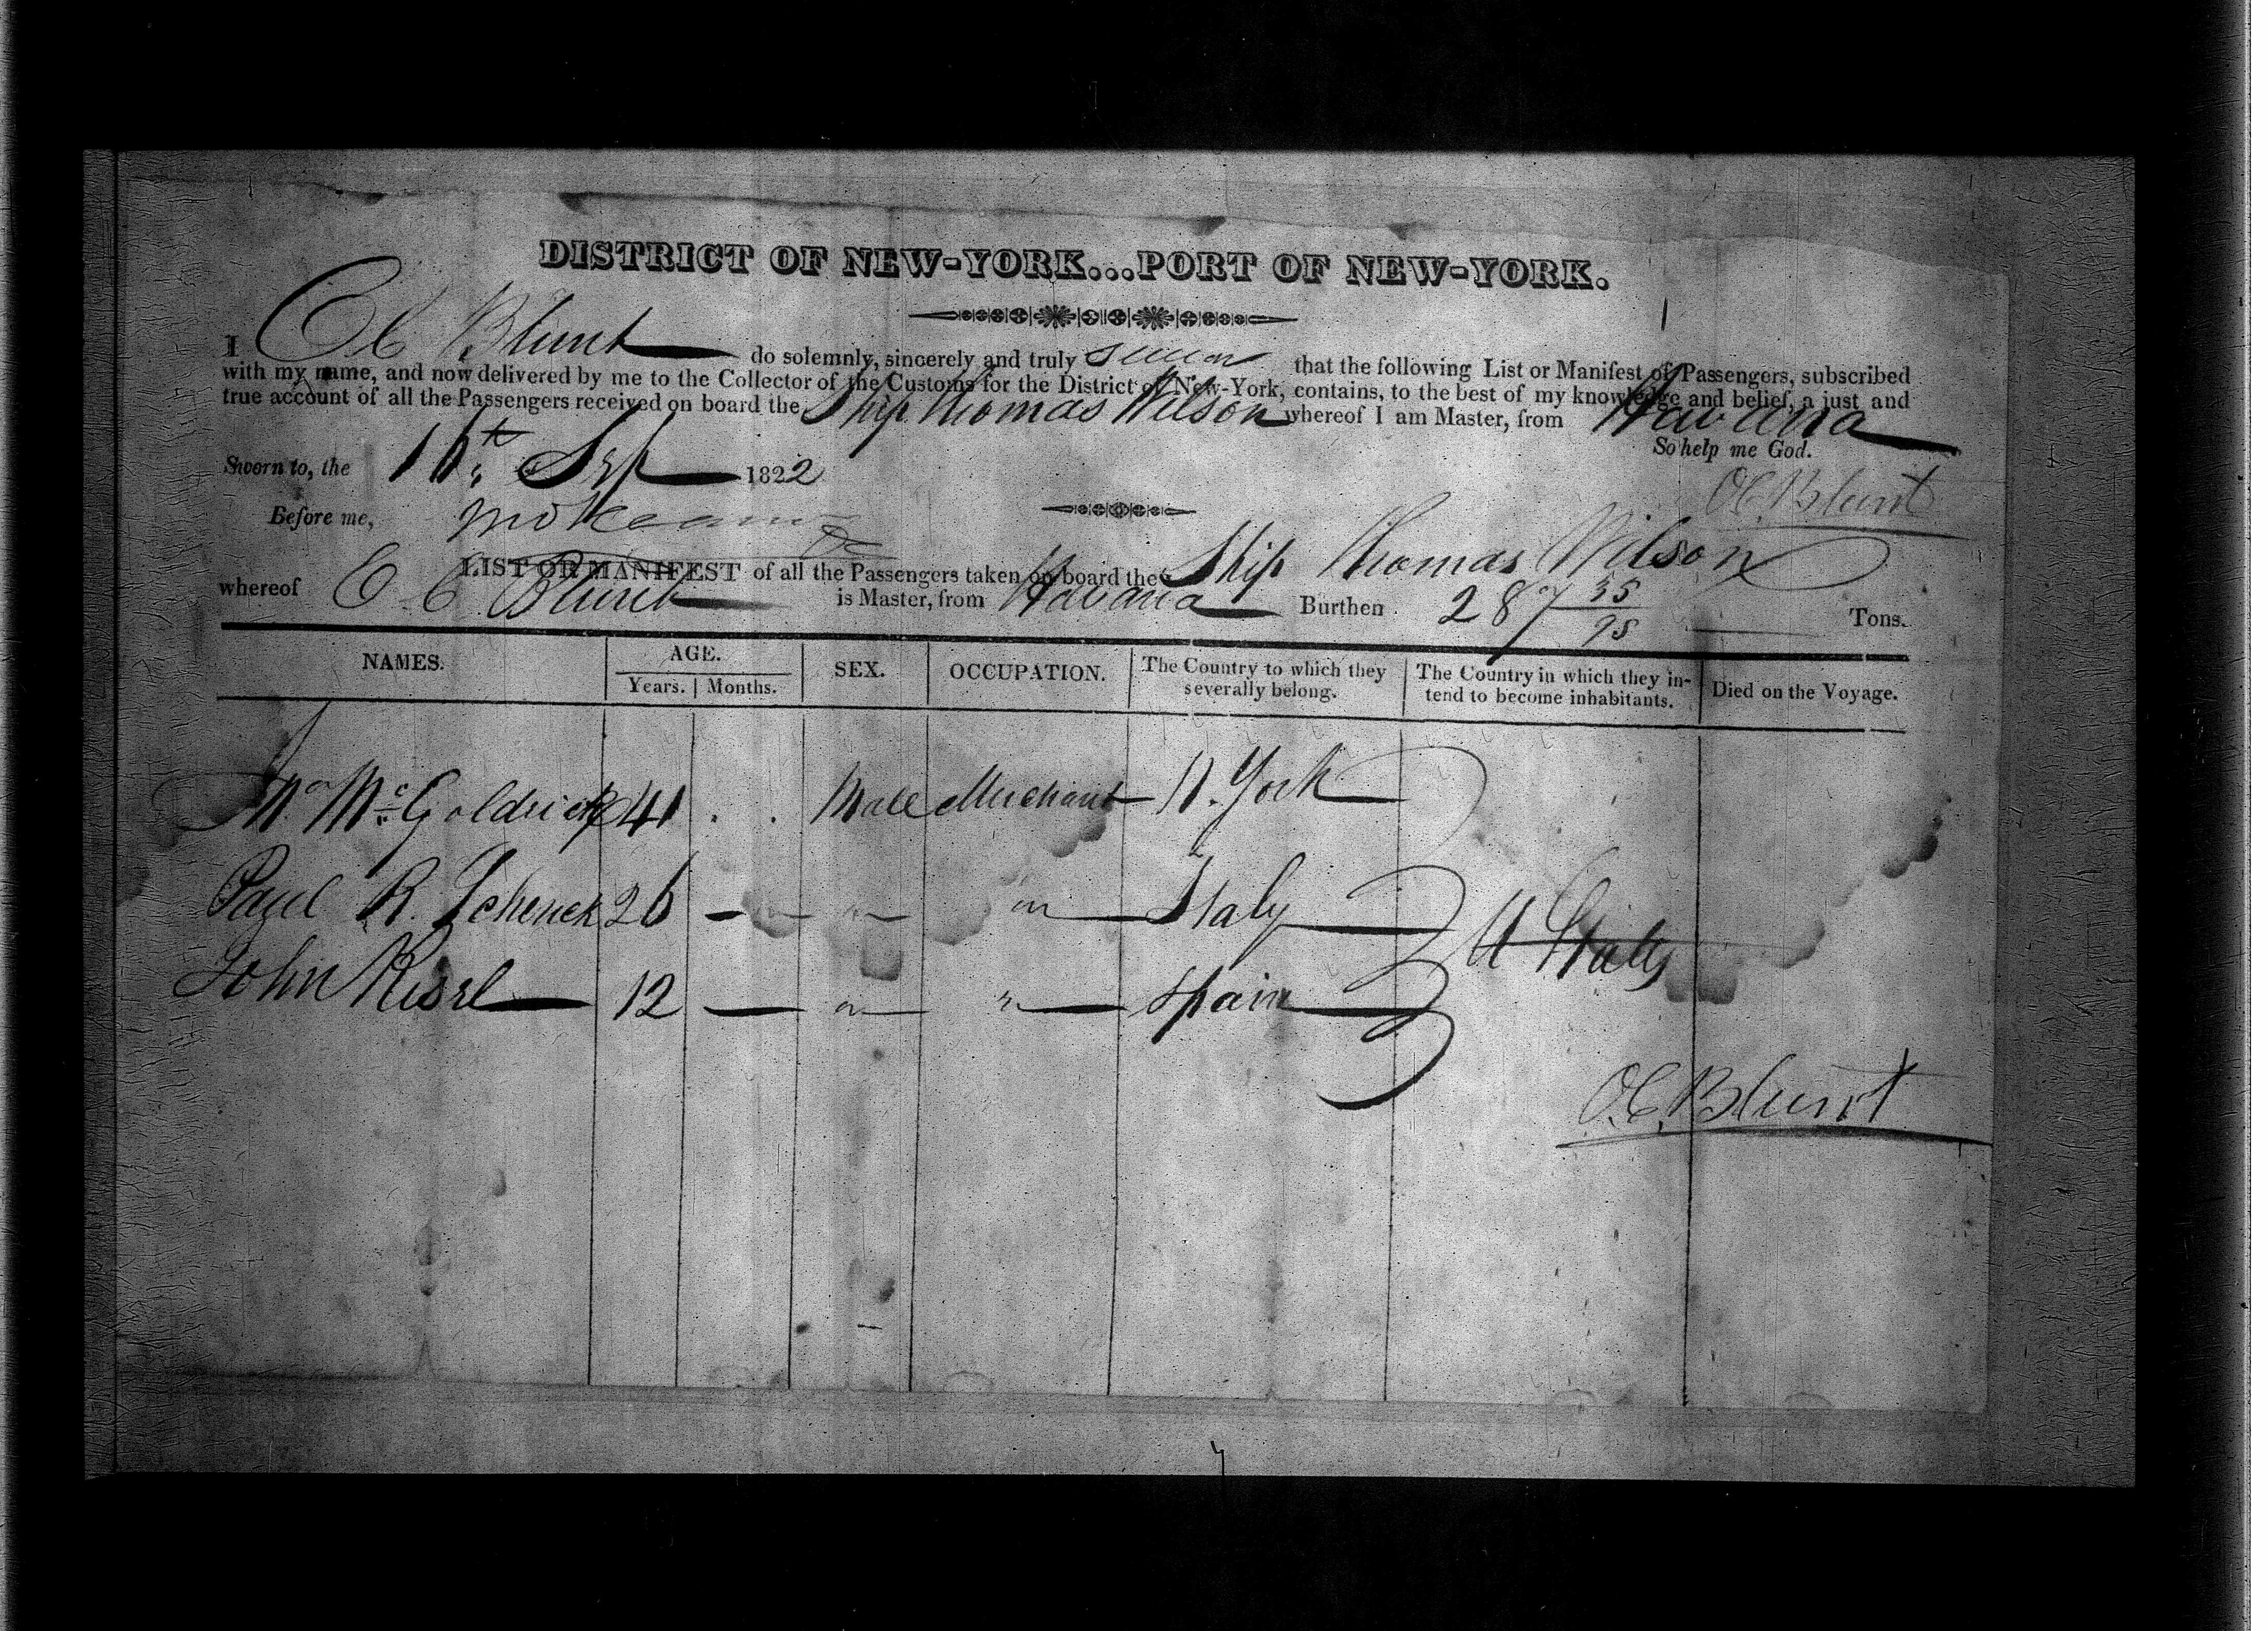 DISTRICT OF NEW-YORK...PORT OF NEW-YORK.
I O C Blunt do solemnly, sincerely and truly swear that the following List or Manifest of Passengers, subscribed
with my name, and now delivered by me to the Collector of the Customs for the District of New-York, contains, to the best of my knowledge and belief, a just and
true account of all the Passengers received on board the Ship Thomas Wilson whereof I am Master, from Havana
So help me God.
Sworn to, the 16th Sep 1822
O C Blunt
Before me,
LIST OR MANIFEST of all the Passengers taken on board the Ship Thomas Wilson
whereof O C Blunt is Master, from Havana Burthen 287 35/95 Tons.
NAMES. AGE. SEX. OCCUPATION. The Country to which they severally belong. The Country in which they intend to become inhabitants. Died on the Voyage.
Years. Months.
Mc Goldrick 41 Male Merchant N. York
Paul R. Schenck 26 — " " Italy U States
John 12 — " " Spain
O.C. Blunt